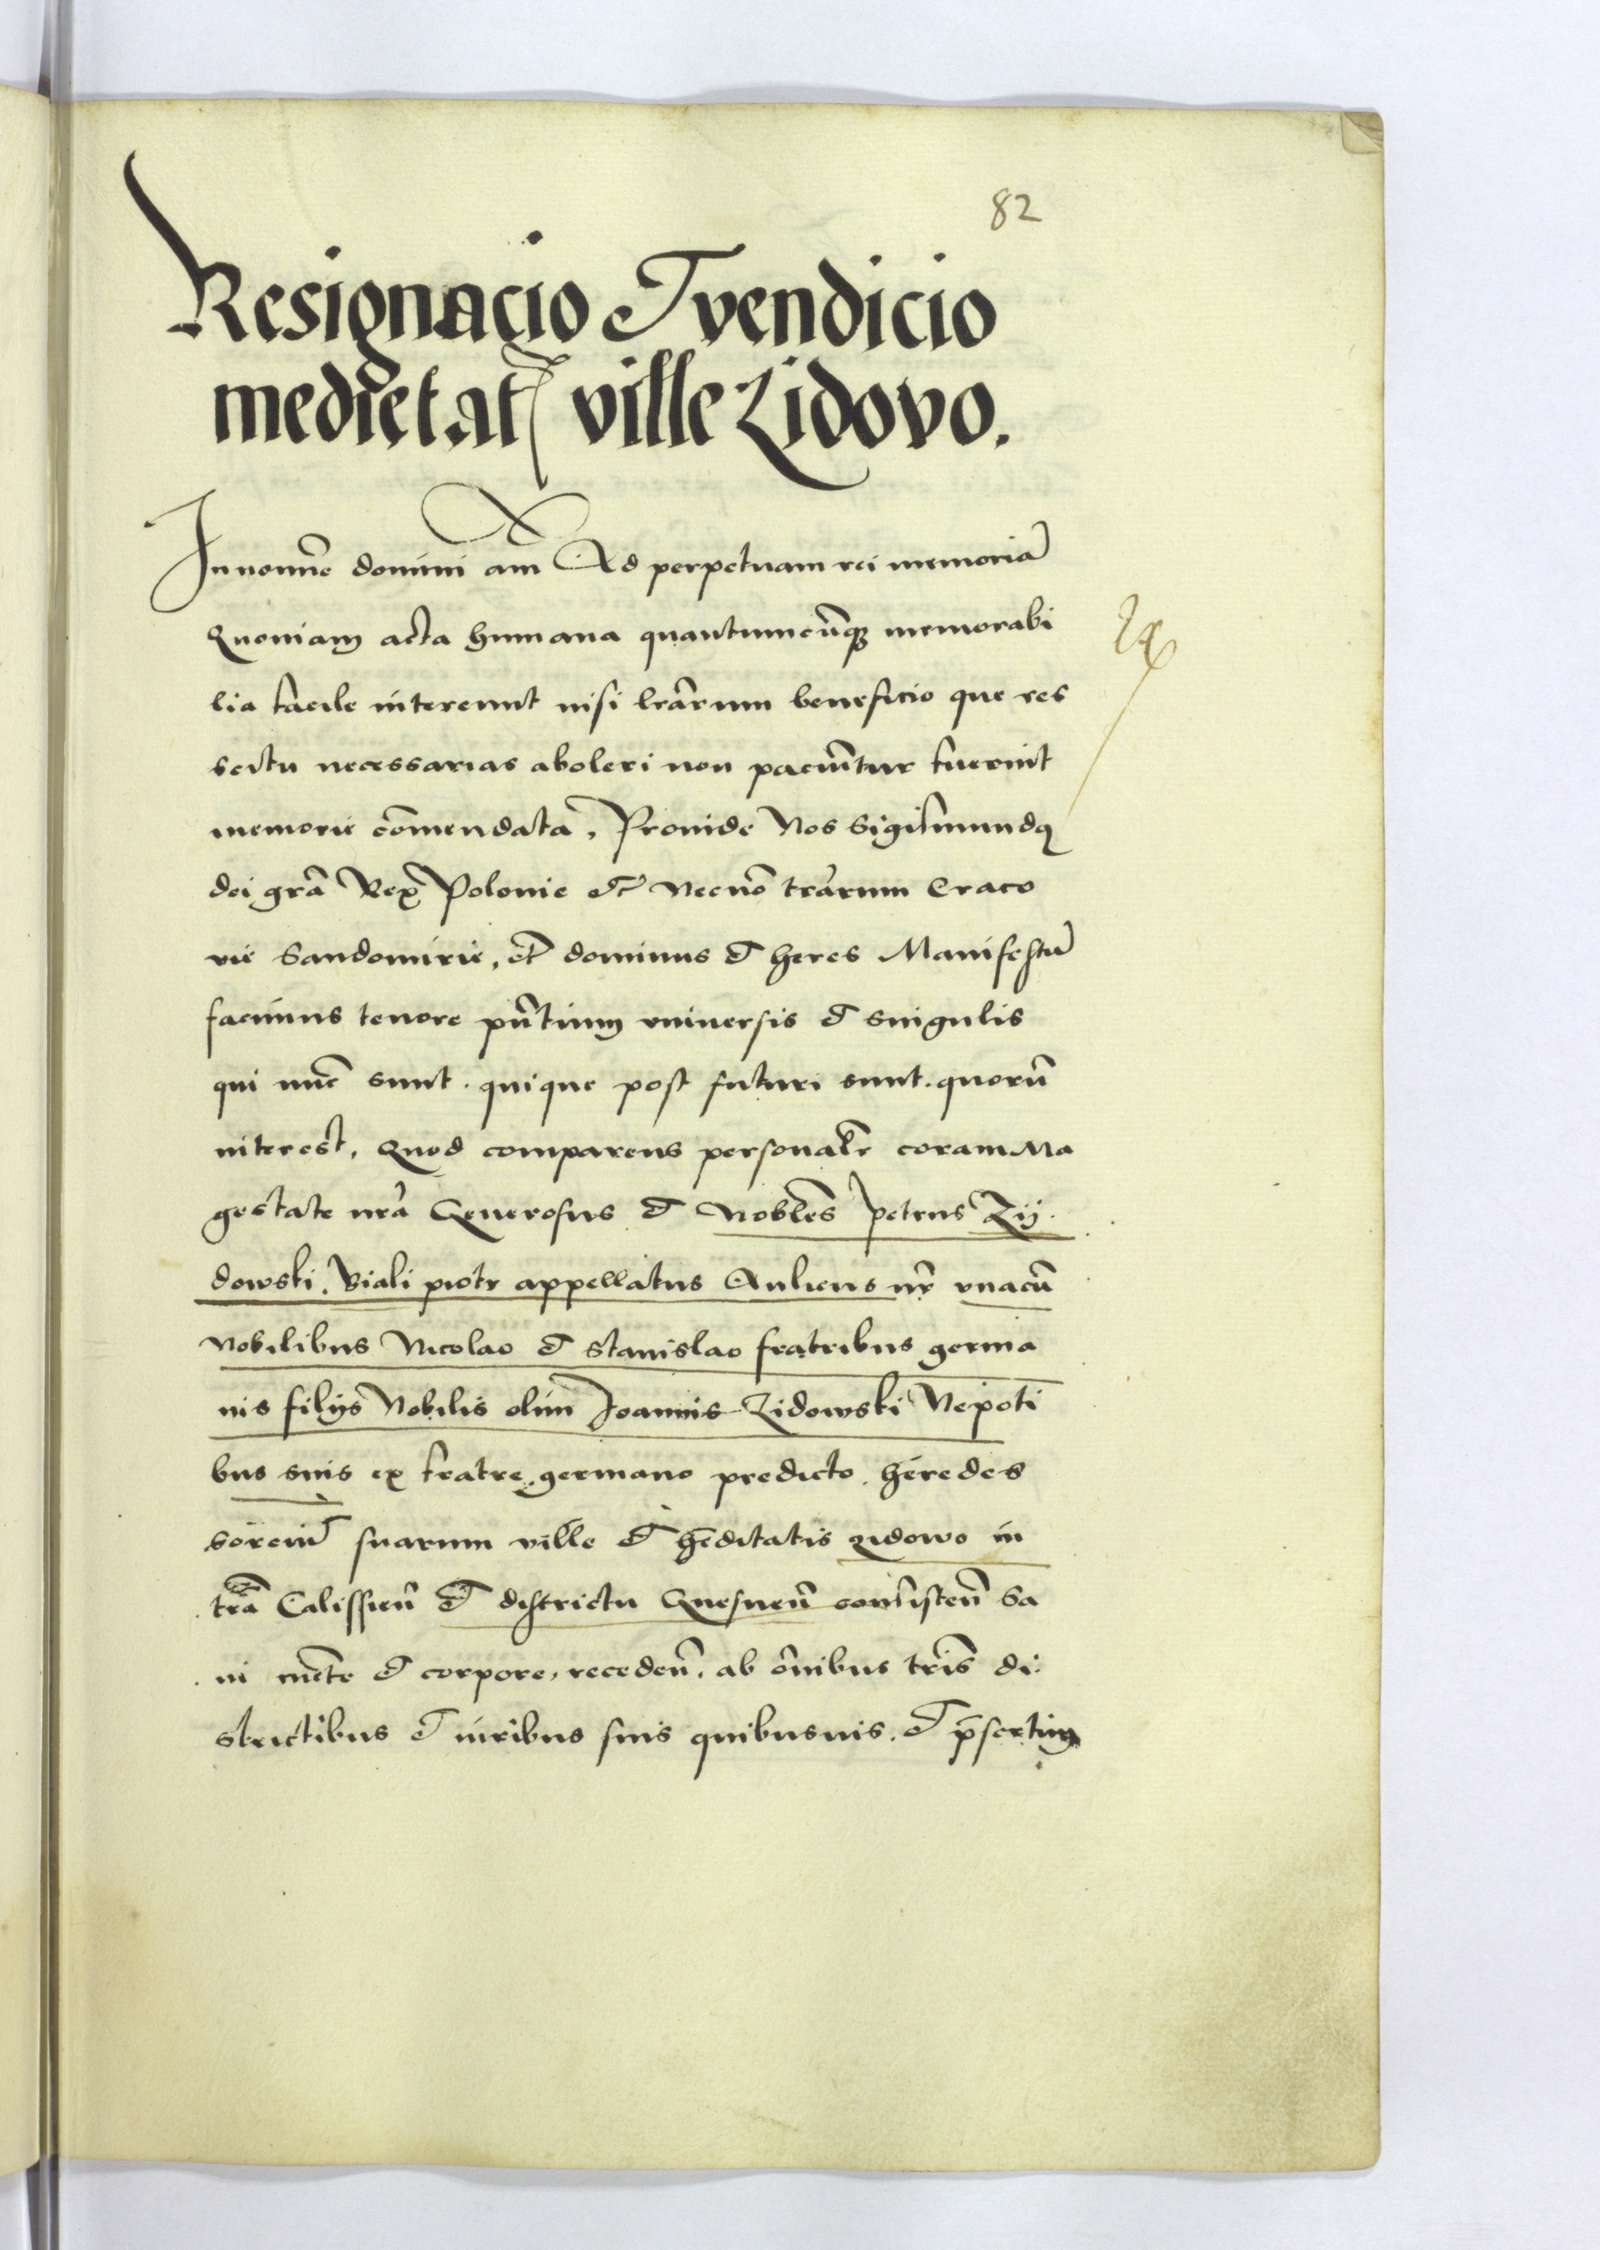 82
Resignacio et vendicio
medietatꝭ ville Zidovo.
In noīe domini amē Ad perpetuam rei memoriā
Quoniam acta humana quantumcūqꝫ memorabi
lia facile intereunt nisi lrārum beneficio que res
scitu necessarias aboleri non paciūtur fuerint
memorie cōmendata, Proinde Nos Sigismundꝰ
dei grā Rex Polonie etc̄ Necnō trārum Craco
vie Sandomirie, etc̄ dominus et heres Manifestū
facimus tenore pn̄tium vniversis et singulis
qui nūc sunt. quique post futuri sunt. quorū
interest, Quod comparens personalr̄ coram Ma
gestate nrā Generosus et Nobles̄ petrus Zij
dowski, Biali piotr appellatus Aulicus nr̄ vnacū
Nobilibus Nicolao et Stanislao fratribus germa
nis filijs Nobilis olim Joannis Zidowski Nepoti
bus suis ex fratre germano predicto. heredes
suarum ville et hēditatis zidowo in
trā Calissieñ et districtu Gnesneñ consisteñ Sa
ni mēte et corpore, recedeñ. ab oīnibus trīs di
strictibus et iuribus suis quibusuis. et p̄sertim